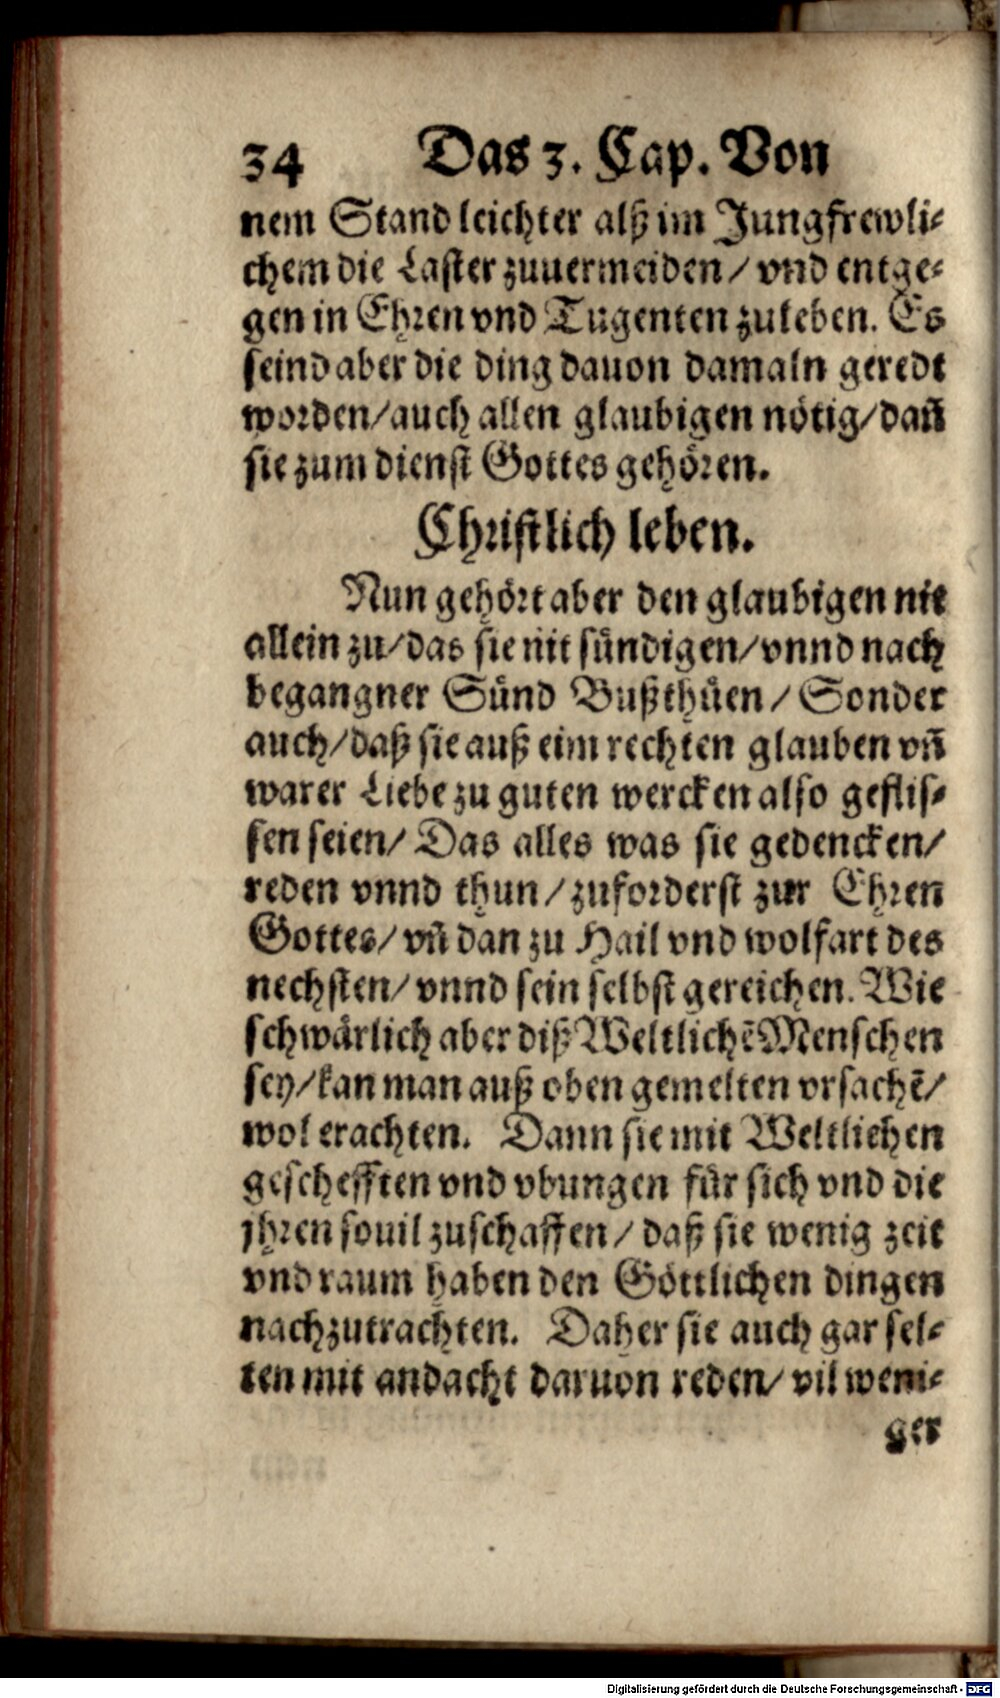 34 Das 3. Cap. Von
nem Stand leichter alß im Jungfrewli⸗
chem die Laster zuuermeiden / vnd entge⸗
gen in Ehren vnd Tugenten zuleben. Es
seind aber die ding dauon damaln geredt
worden/auch allen glaubigen nötig/dañ
sie zum dienst Gottes gehören.
Christlich leben.
Nun gehört aber den glaubigen nit
allein zu/das sie nit sündigen/vnnd nach
begangner Sünd Bußthüen / Sonder
auch/daß sie auß eim rechten glauben vñ
warer Liebe zu guten wercken also geflis⸗
sen seien/ Das alles was sie gedencken/
reden vnnd thun / zuforderst zur Ehren
Gottes/ vñ dan zu Hail vnd wolfart des
nechsten/ vnnd sein selbst gereichen. Wie
schwärlich aber diß Weltlichẽ Menschen
sey/kan man auß oben gemelten vrsachẽ/
wol erachten. Dann sie mit Weltlichen
geschefften vnd vbungen für sich vnd die
jhren souil zuschaffen / daß sie wenig zeit
vnd raum haben den Göttlichen dingen
nachzutrachten. Daher sie auch gar sel⸗
ten mit andacht daruon reden/ vil weni⸗
ger
Digitalisierung gefördert durch die Deutsche Forschungsgemeinschaft - DFG